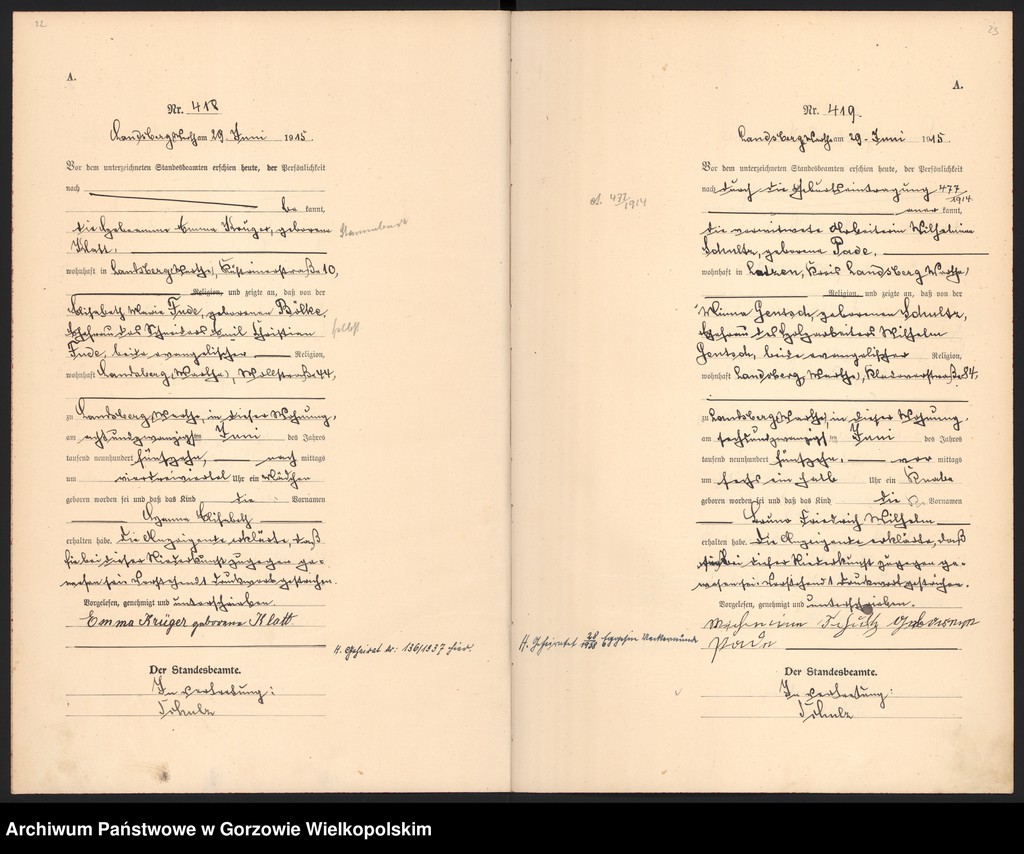 22
A.
Nr. 418
Landsberg Warthe am 29. Juni 1915.
Vor dem unterzeichneten Standesbeamten erschien heute, der Persönlichkeit
nach
be kannt,
die Hebeamme Emma Krüger, geborene
Klatt.
wohnhaft in Landsberg (Warthe), Küstrinerstraße 10,
Religion, und zeigte an, daß von der
Elisabeth Marie Fude, geborenen Bölke,
Ehefrau des Schneiders Emil Christian
Fude, beide evangelischer Religion,
wohnhaft Landsberg (Warthe), Wollstraße 44,
zu Landsberg (Warthe), in dieser Wohnung,
am achtundzwanzigsten Juni des Jahres
tausend neunhundert fünfzehn, nach mittags
um vierdreiviertel Uhr ein Mädchen
geboren worden sei und daß das Kind die Vornamen
Elisabeth
erhalten habe. Die Anzeigende erklärte, daß
sie bei dieser Niederkunft zugegen ge-
wesen sei. Vorstehend 1 Druckwort gestrichen.
Vorgelesen, genehmigt und unterschrieben.
Emma Krüger geborene Klatt
H. Geheirat Nr. 136/1937 hier.
Der Standesbeamte.
In Vertretung:
23
A.
Nr. 419.
Landsberg Warthe am 29. Juni 1915.
Vor dem unterzeichneten Standesbeamten erschien heute, der Persönlichkeit
nach durch die Geburtseintragung 477/1914
aner kannt,
die verwitwete Arbeiterin Wilhelmine
Schultz, geborene Pade,
wohnhaft in Kreis Landsberg (Warthe)
Religion, und zeigte an, daß von der
Minna Gentsch, geborenen Schultz,
Ehefrau des Holzarbeiters Wilhelm
Gentsch, beide evangelischer Religion,
wohnhaft Landsberg (Warthe), Kladowerstraße 84,
zu Landsberg (Warthe), in dieser Wohnung,
am sechsundzwanzigsten Juni des Jahres
tausend neunhundert fünfzehn, vor mittags
um sechs ein halb Uhr ein Knabe
geboren worden sei und daß das Kind die Vornamen
Bruno Friedrich Wilhelm
erhalten habe. Die Anzeigende erklärte, daß
sie bei dieser Niederkunft zugegen ge-
wesen sei. Vorstehend 1 Druckwort gestrichen.
Vorgelesen, genehmigt und unterschrieben.
Schultz Geborene
Pade
H. Geheiratet
Der Standesbeamte.
In Vertretung:
Archiwum Państwowe w Gorzowie Wielkopolskim